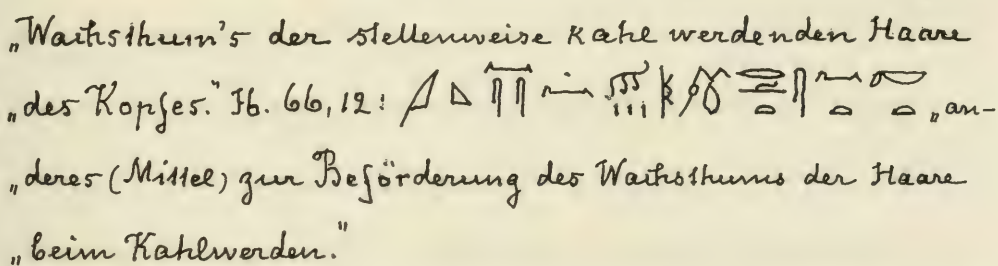 „Wachsthum's der stellenweise kahl werdenden Haare
„des Kopfes.“ Ib. 66,12: „an-
„deres (Mittel) zur Beförderung des Wachsthums der Haare
„beim Kahlwerden.“